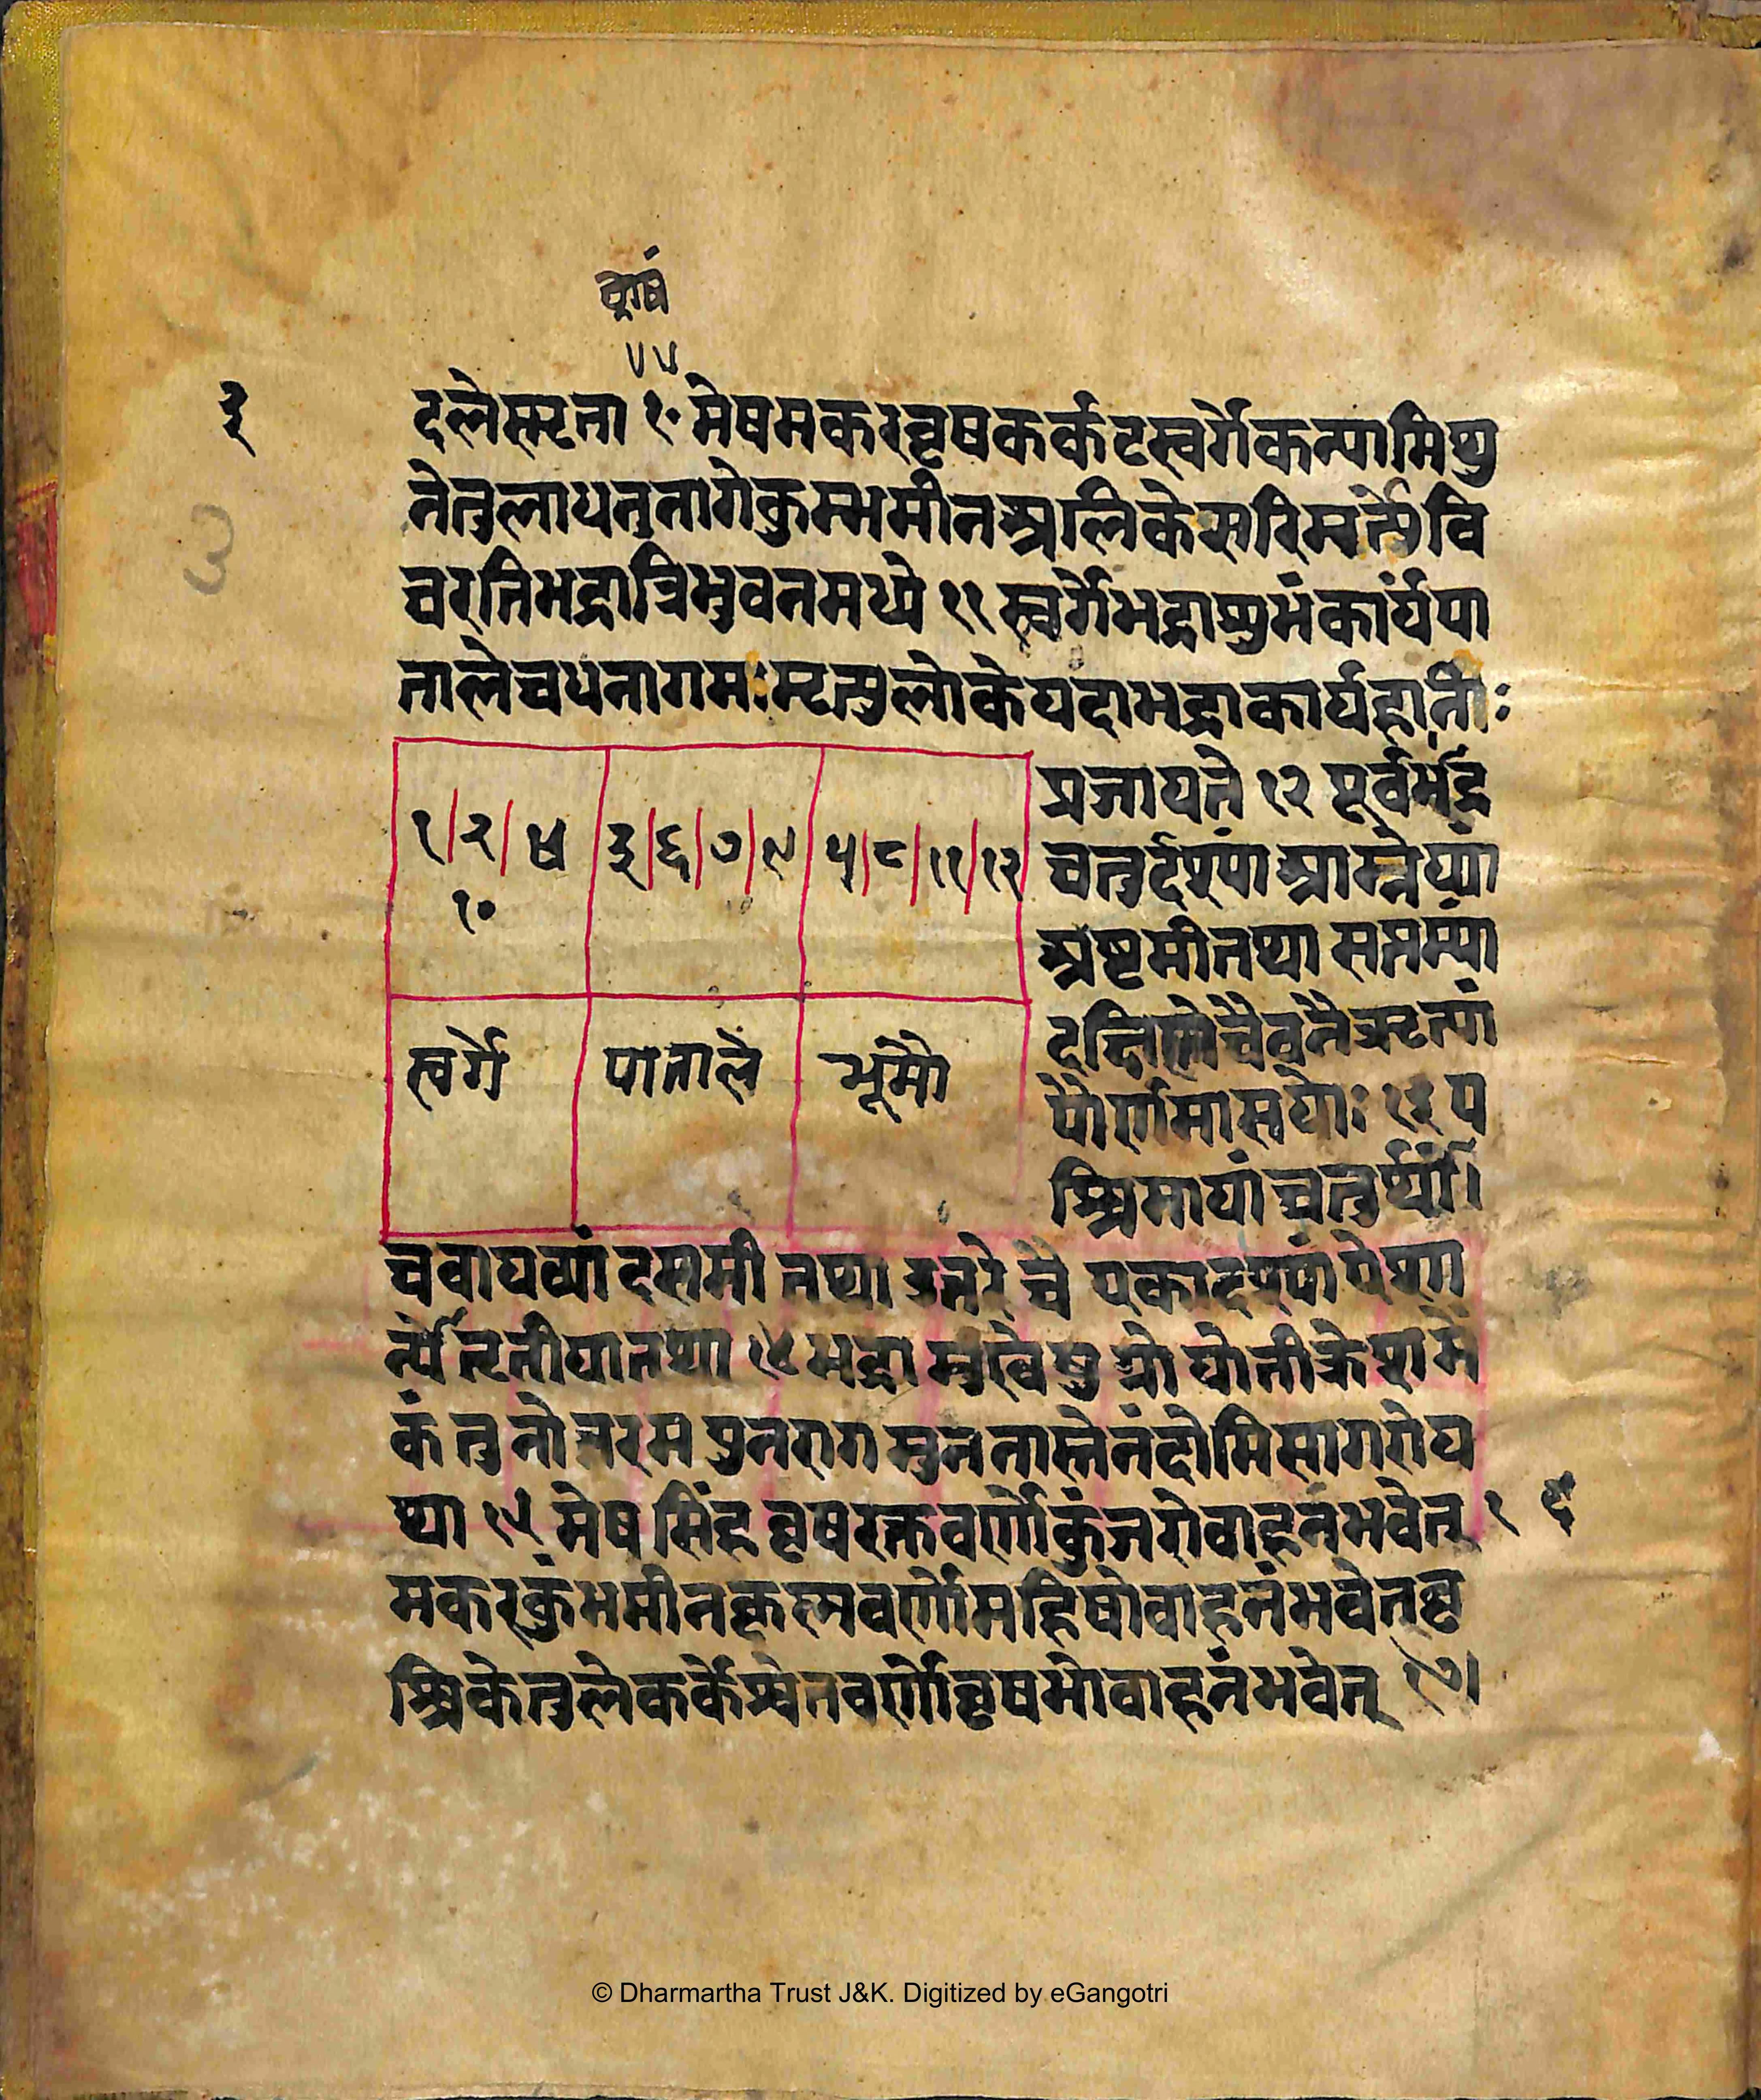 ३
3
दलेस्मृता १० मेषमकरवृषकर्कटस्वर्गेकन्यामिथु
नेतुलाधनुनागेकुम्भमीनअलिकेसरिमर्त्तेवि
चरतिभद्रात्रिभुवनमध्ये ११ स्वर्गेभद्राशुभंकार्यंपा
तालेचधनागमःमृत्युलोकेयदाभद्राकार्यहानीः
प्रजायते १२ पूर्वेभद्र
चतुर्दश्यां आग्नेय्यां
अष्टमीतथा सप्तम्यां
दक्षिणेचैवनैऋत्यां
पौर्णमासयोः १३ प
श्चिमायां चतुर्थ्यां
१|२|४ ३|६|७|९ ५|८|११|१२
१०
स्वर्गे पाताले भूमौ
चवायव्यां दसमी तथा उत्तरे चै एकादश्यां
तृतीयातथा १४ भद्रा
पुनराग सागरोय
था १५ मेष सिंह वृषरक्तवर्णोकुंजरोवाहनंभवेत् १ ६
मकरकुंभमीनकृस्नवर्णोमहिषोवाहनंभवेत् वृ
श्चिकेतुलेकर्केश्वेतवर्णोवृषभोवाहनंभवेत् १७।
© Dharmartha Trust J&K. Digitized by eGangotri